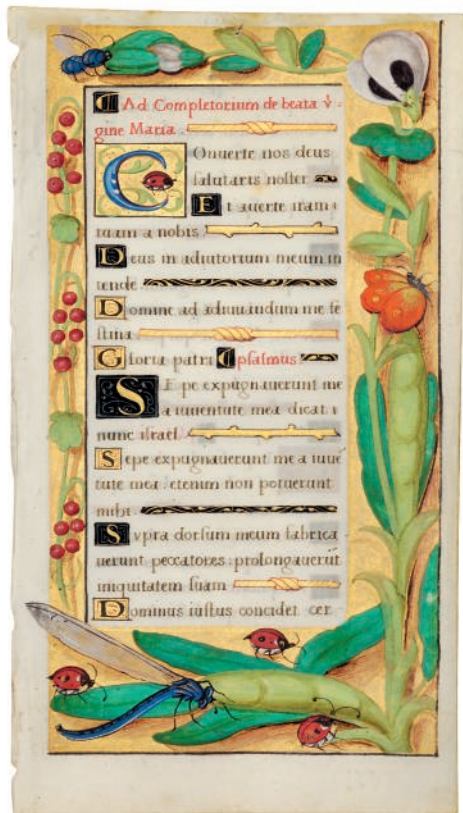 Ad Completorium de beata v̄
gine Maria.
Conuerte nos deus
salutaris noster
Et auerte iram
tuam a nobis
Deus in adiutorium meum in
tende
Domine ad adiuuandum me fe
stina
Gloria patri psalmus
Sepe expugnauerunt me
a iuuentute mea dicat
nunc israel
Sepe expugnauerunt me a iuuē
tute mea: etenim non potuerunt
mihi
Supra dorsum meum fabrica
uerunt peccatores: prolongauerūt
iniquitatem suam
Dominus iustus concidet cer